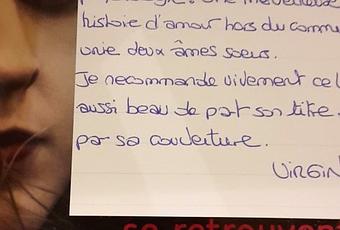 merveilleuse
histoie d'amour hors du commu
unie deux âmes soeurs.
Je recommande vivement ce l
aussi beau de part son titre.
par sa couverture.
VIRGIN
se retrouven